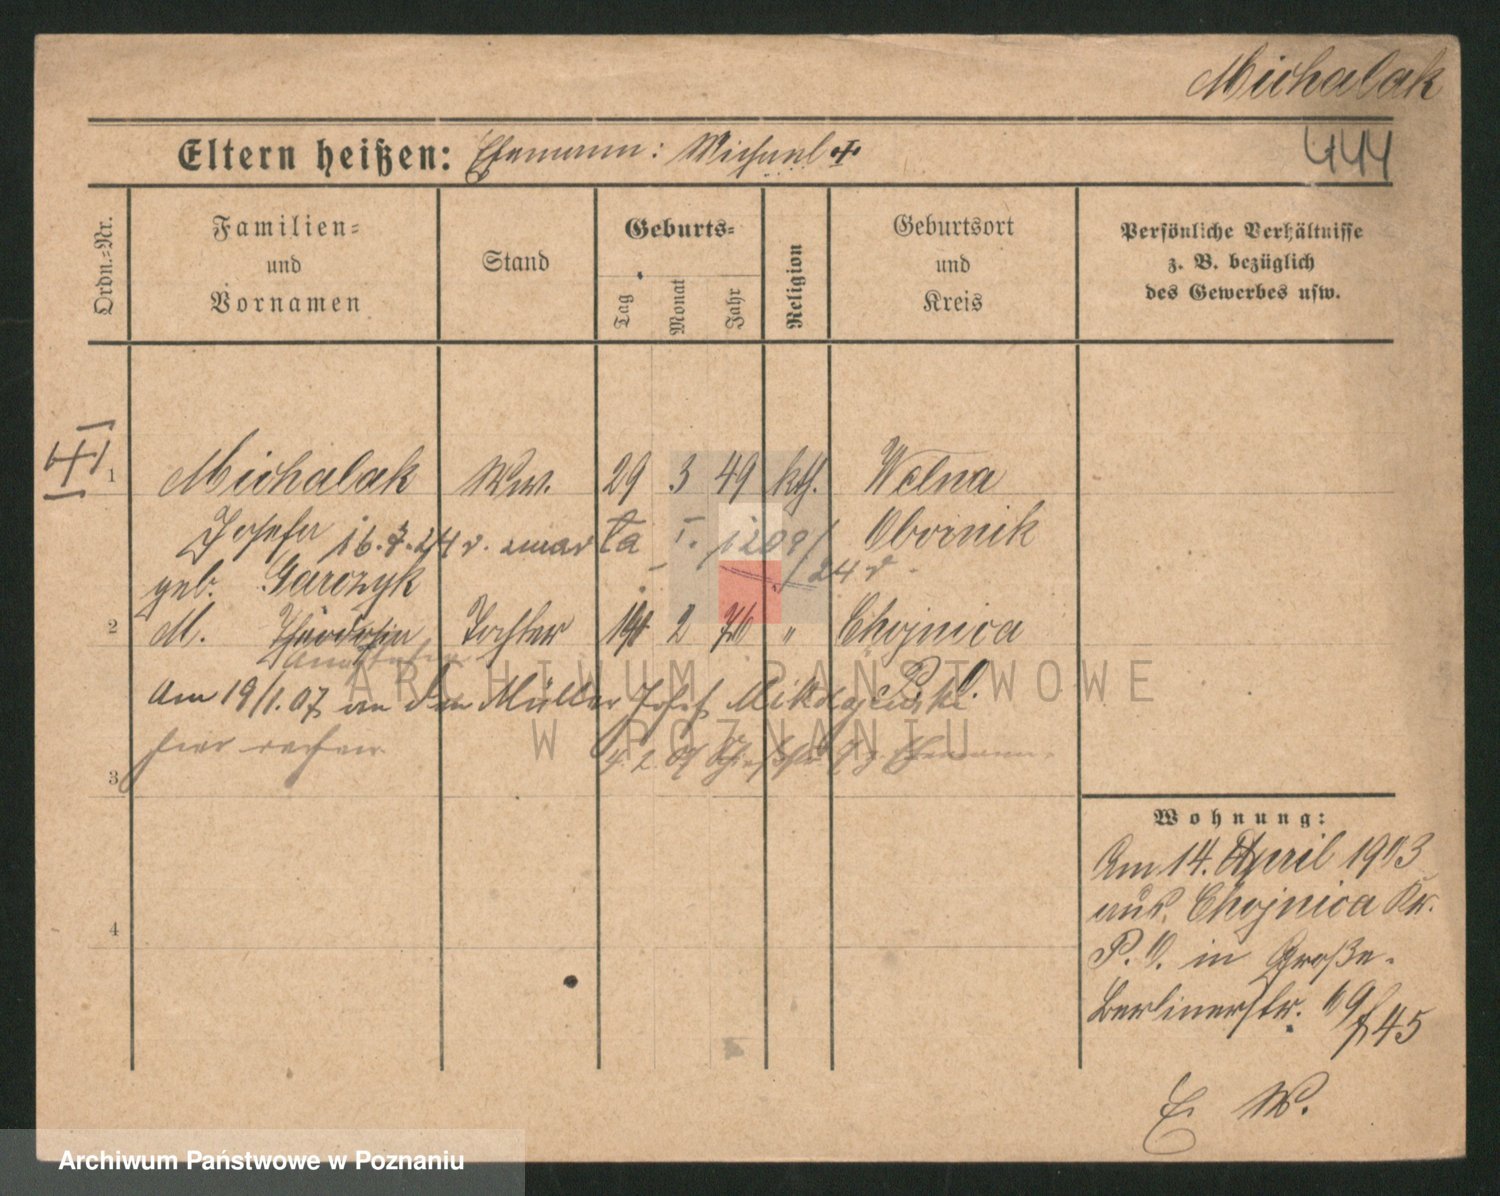 Michalak
444
Eltern heißen: Ehemann: Michael +
Ordn.-Nr.
Familien- und Vornamen
Stand
Geburts-
Tag
Monat
Jahr
Religion
Geburtsort und Kreis
Persönliche Verhältnisse z. B. bezüglich des Gewerbes usw.
1 Michalak Ww. 29 3 49 kth. Welna
Josefa 16.3.24 r. zmarła I. 1209/24 r. Obornik
geb. Garczyk
2 M. Tochter 2 " Chojnica
P. O.
Am 19/1.07 an den Müller Josef
hier
4.2.07 Ehemann
3
4
Wohnung:
Am 14. April 1903
aus Chojnica Kr.
P. O. in Große
Berlinerstr. 69
f 45
E. W.
ARCHIWUM PAŃSTWOWE
W POZNANIU
Archiwum Państwowe w Poznaniu